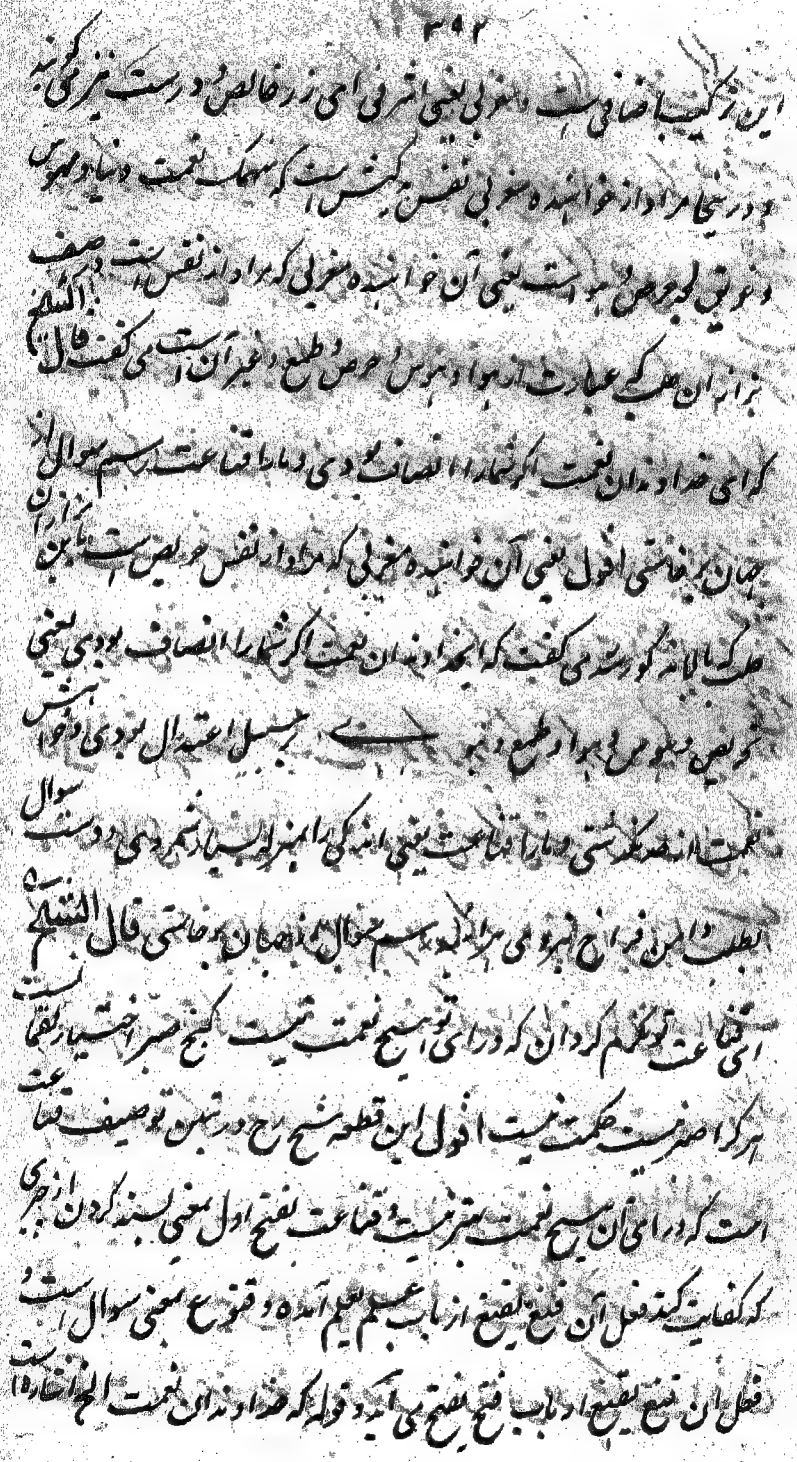 ۳۹۲
این ترکیب باضافی است و مغربی یعنی اشرفی ای زر خالص و درست نیز می گویند
و در ینجا مراد از خوانیده مغربی نفس کنش است که نعمت دنیا و هوس
و حرص و هوا است یعنی آن خوانیده مغربی که مراد از نفس است در صف
بزازان حلب که عبارت از هوا و هوس و حرص و طمع و غیر آن است می گفت قال الشیخ
که ای خداوندان نعمت اگر شمارا انصاف بودی و مارا قناعت رسم سوال از
جهان برخاستی اقول یعنی آن خوانیده مغربی که مراد از نفس حریص است باین بزازان
حلب که بالا مذکور شد می گفت که ایخداوندان نعمت اگر شمارا انصاف بودی یعنی
و حرص و هوا و طمع و بر سبیل اعتدال بودی و خواهش
نعمت از حد نگذشتی و مارا قناعت یعنی اندکی را بمنزله بسیار شمردمی و دست سوال
بطلب دامن فراخ نبردمی هر آینه رسم سوال از جهان برخاستی قال الشیخ
ای قناعت تونگرم گردان که ورای تو هیچ نعمت نیست کنج صبر اختیار لقمانست
هر کرا صبر نیست حکمت نیست اقول این قطعه شیخ رح در تبیین توصیف قناعت
است که ورای آن هیچ نعمت بهتر نیست و قناعت بفتح اول بمعنی بسند کردن از چیزی
که کفایت کند فعل آن قنع یقنع از باب علم یعلم آمده و قنوع بمعنی سوال است و
فعل آن قنع یقنع از باب فتح یفتح می آید و قوله که خداوندان نعمت الخ اشاره است